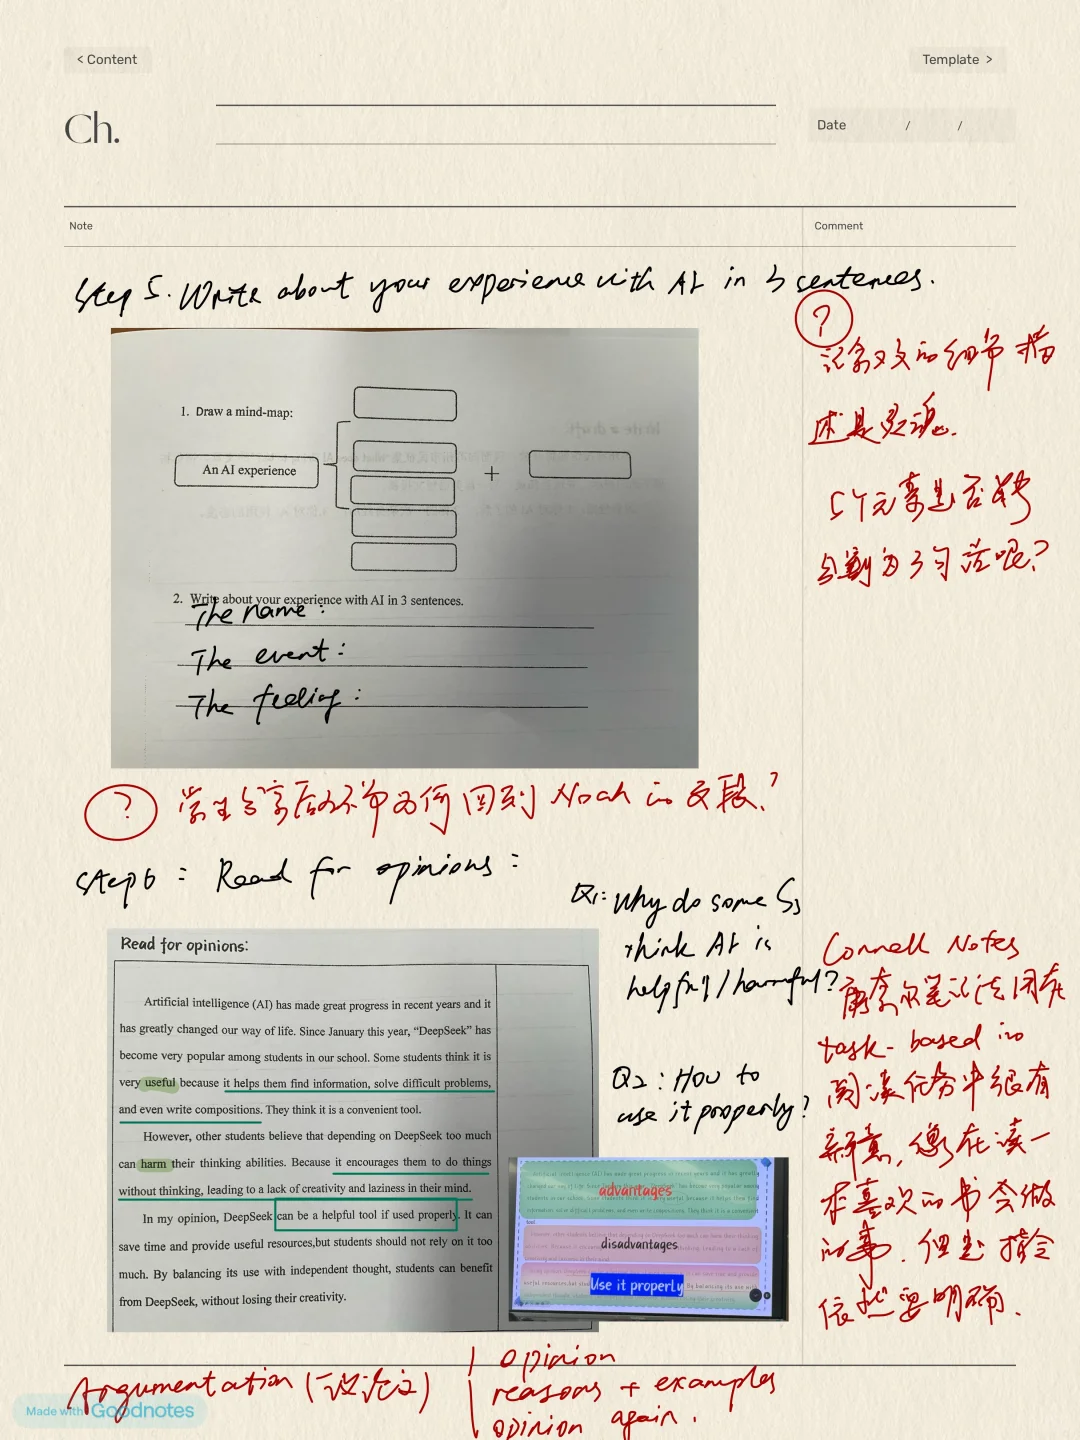 < Content
Template >
Ch.
Date / /
Note
Comment
Step 5. Write about your experience with AI in 3 sentences.
?
记叙文的细节描
述是灵魂.
5个元素是否够
分割为3句话呢?
1. Draw a mind-map:
An AI experience
+
2. Write about your experience with AI in 3 sentences.
The name:
The event:
The feeling:
? 学生分享后为何回到Noah的文段?
Step 6: Read for opinions:
Q1: Why do some Ss
think AI is
helpful/harmful?
Q2: How to
use it properly?
Read for opinions:
Artificial intelligence (AI) has made great progress in recent years and it
has greatly changed our way of life. Since January this year, “DeepSeek” has
become very popular among students in our school. Some students think it is
very useful because it helps them find information, solve difficult problems,
and even write compositions. They think it is a convenient tool.
However, other students believe that depending on DeepSeek too much
can harm their thinking abilities. Because it encourages them to do things
without thinking, leading to a lack of creativity and laziness in their mind.
In my opinion, DeepSeek can be a helpful tool if used properly. It can
save time and provide useful resources,but students should not rely on it too
much. By balancing its use with independent thought, students can benefit
from DeepSeek, without losing their creativity.
advantages
disadvantages
Use it properly
Cornell Notes
康奈尔笔记法用在
task-based的
阅读任务中很有
新意,像在读一
本喜欢的书会做
的事.但是指令
依然要明确.
Argumentation (议论文)
opinion
reasons + examples
opinion again.
Made with Goodnotes